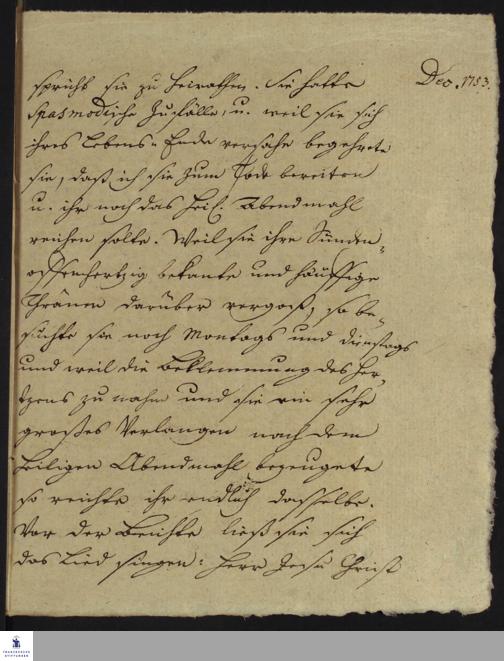 Dec. 1753.
spricht sie zu heirathen. Sie hatte
Spasmodische Zufälle, u. weil sie sich
ihres Lebens-Ende versahe begehrete
sie, daß ich sie zum Tode bereiten
u. ihr noch das heil. Abendmahl
reichen solte. Weil sie ihre Sünden
offenhertzig bekante und häuffige
Thränen darüber vergoß, so be-
suchte sie noch Montags und Dienstags
und weil die Beklemmung des Her-
tzens zu nahm und sie ein sehr
großes Verlangen nach dem
heiligen Abendmahl bezeugete
so reichte ihr endlich dasselbe.
Vor der Beichte ließ sie sich
das Lied singen: Herr Jesu Christ
FRANCKESCHE
STIFTUNGEN